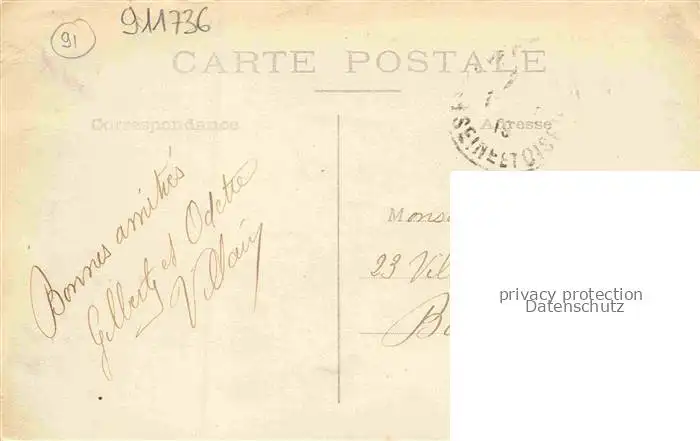 91
911736
CARTE POSTALE
Correspondance
Adresse
SEINE ET OISE
Bonnes amitiés
Gilbert et Odette
Villain
Mons
23 Vil
B
privacy protection
Datenschutz